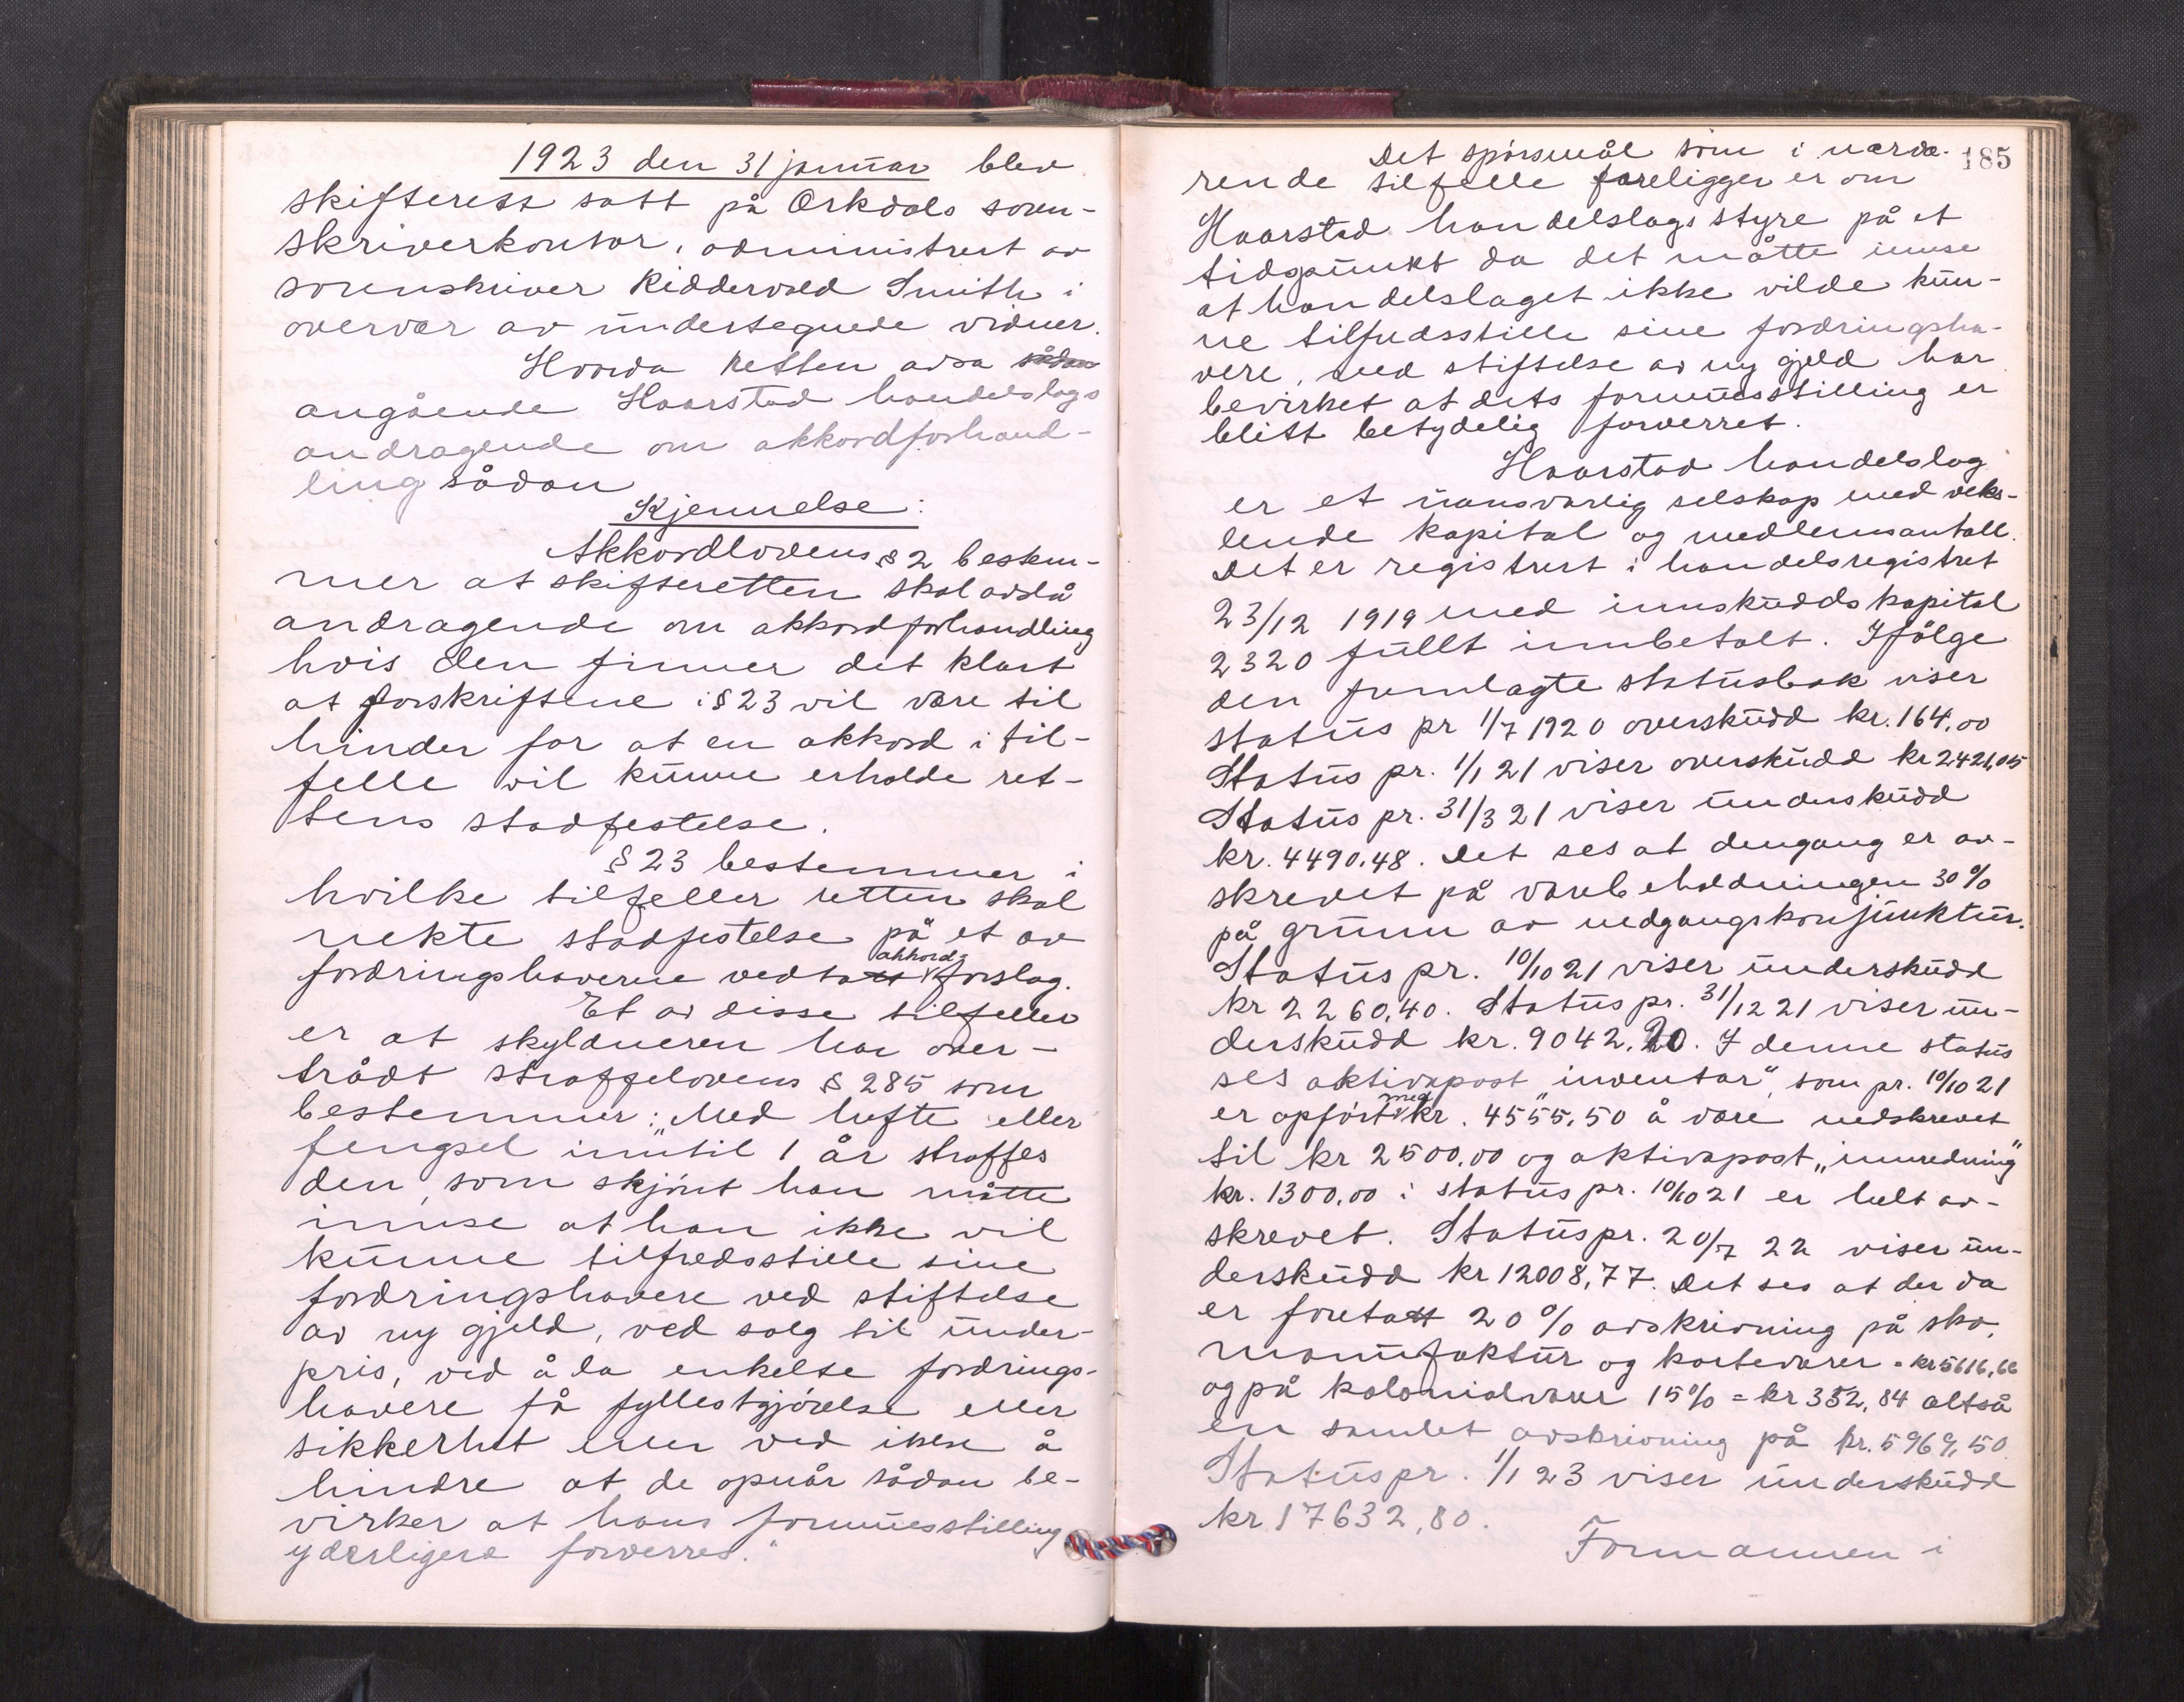 1923 den 31 januar blev
skifterett satt på Orkdals soren-
skriverkontor, administrert av
sorenskriver Ridderold Smith i
overvær av undertegnede vidner.
Hvorda Retten avsa sådan
angående Haarstad handelslags
andragende om akkordforhand-
ling sådan
Kjennelse:
Akkordlovens § 2 bestem-
mer at skifteretten skal avslå
andragende om akkordforhandling
hvis den finner det klart
at forskriftene i § 23 vil være til
hinder for at en akkord i til-
felle vil kunne erholde ret-
tens stadfestelse.
§ 23 bestemmer i
hvilke tilfeller retten skal
nekte stadfestelse på et av
fordringshaverne vedtatt akkord-forslag.
Et av disse tilfeller
er at skyldneren har over-
trådt straffelovens § 285 som
bestemmer: „Med hefte eller
fengsel inntil 1 år straffes
den, som skjønt han måtte
innse at han ikke vil
kunne tilfredsstille sine
fordringshavere ved stiftelse
av ny gjeld, ved salg til under-
pris, ved å la enkelte fordrings-
havere få fyllestgjørelse eller
sikkerhet eller ved ikke å
hindre at de opnår sådan be-
virker at hans formuesstilling
yderligere forverres."
185
Det spørsmål som i nærvæ-
rende tilfelle foreligger er om
Haarstad handelslags styre på et
tidspunkt da det måtte innse
at handelslaget ikke vilde kun-
ne tilfredsstille sine fordringsha-
vere, ved stiftelse av ny gjeld har
bevirket at dets formuesstilling er
blitt betydelig forverret.
Haarstad handelslag
er et uansvarlig selskap med veks-
lende kapital og medlemsantall.
Det er registrert i handelsregistret
23/12 1919 med innskuddskapital
2320 fullt innbetalt. Ifølge
den fremlagte statusbok viser
status pr 1/7 1920 overskudd kr. 164,00
Status pr. 1/1 21 viser overskudd kr 2421,05
Status pr. 31/3 21 viser underskudd
kr. 4490.48. Det ses at dengang er av-
skrevet på varebeholdningen 30 %
på grunn av nedgangskonjunktur.
Status pr. 10/10 21 viser underskudd
kr 2260,40. Status pr. 31/12 21 viser un-
derskudd kr. 9042,20. I denne status
ses aktivapost „inventar", som pr. 10/10 21
er opført med kr. 4555,50 å være nedskrevet
til kr 2500,00 og aktivapost „innredning"
kr. 1300,00 i status pr. 10/10 21 er helt av-
skrevet. Status pr. 20/7 22 viser un-
derskudd kr 12008,77. Det ses at der da
er foretatt 20 % avskrivning på sko,
manufaktur og kortevarer = kr 5616,66
og på kolonialvarer 15 % = kr 352,84 altså
en samlet avskrivning på kr. 5969,50
Status pr. 1/1 23 viser underskudd
kr 17632,80.
Formannen i